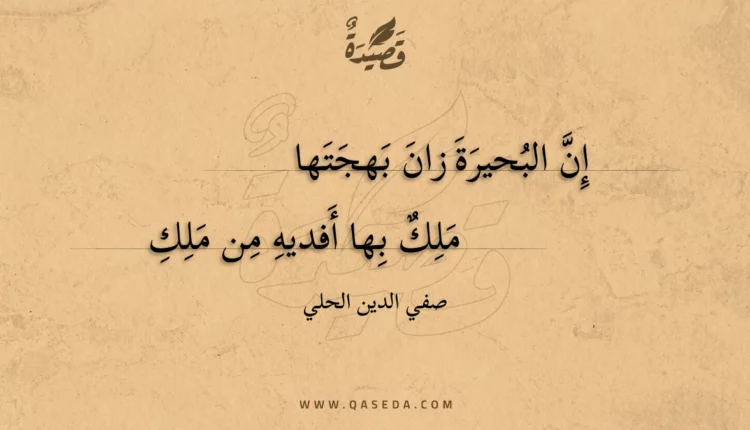 قَصِيدَةٌ
إِنَّ البُحيرَةَ زانَ بَهجَتَها
مَلِكٌ بِها أَفديهِ مِن مَلِكِ
صفي الدين الحلي
WWW.QASEDA.COM